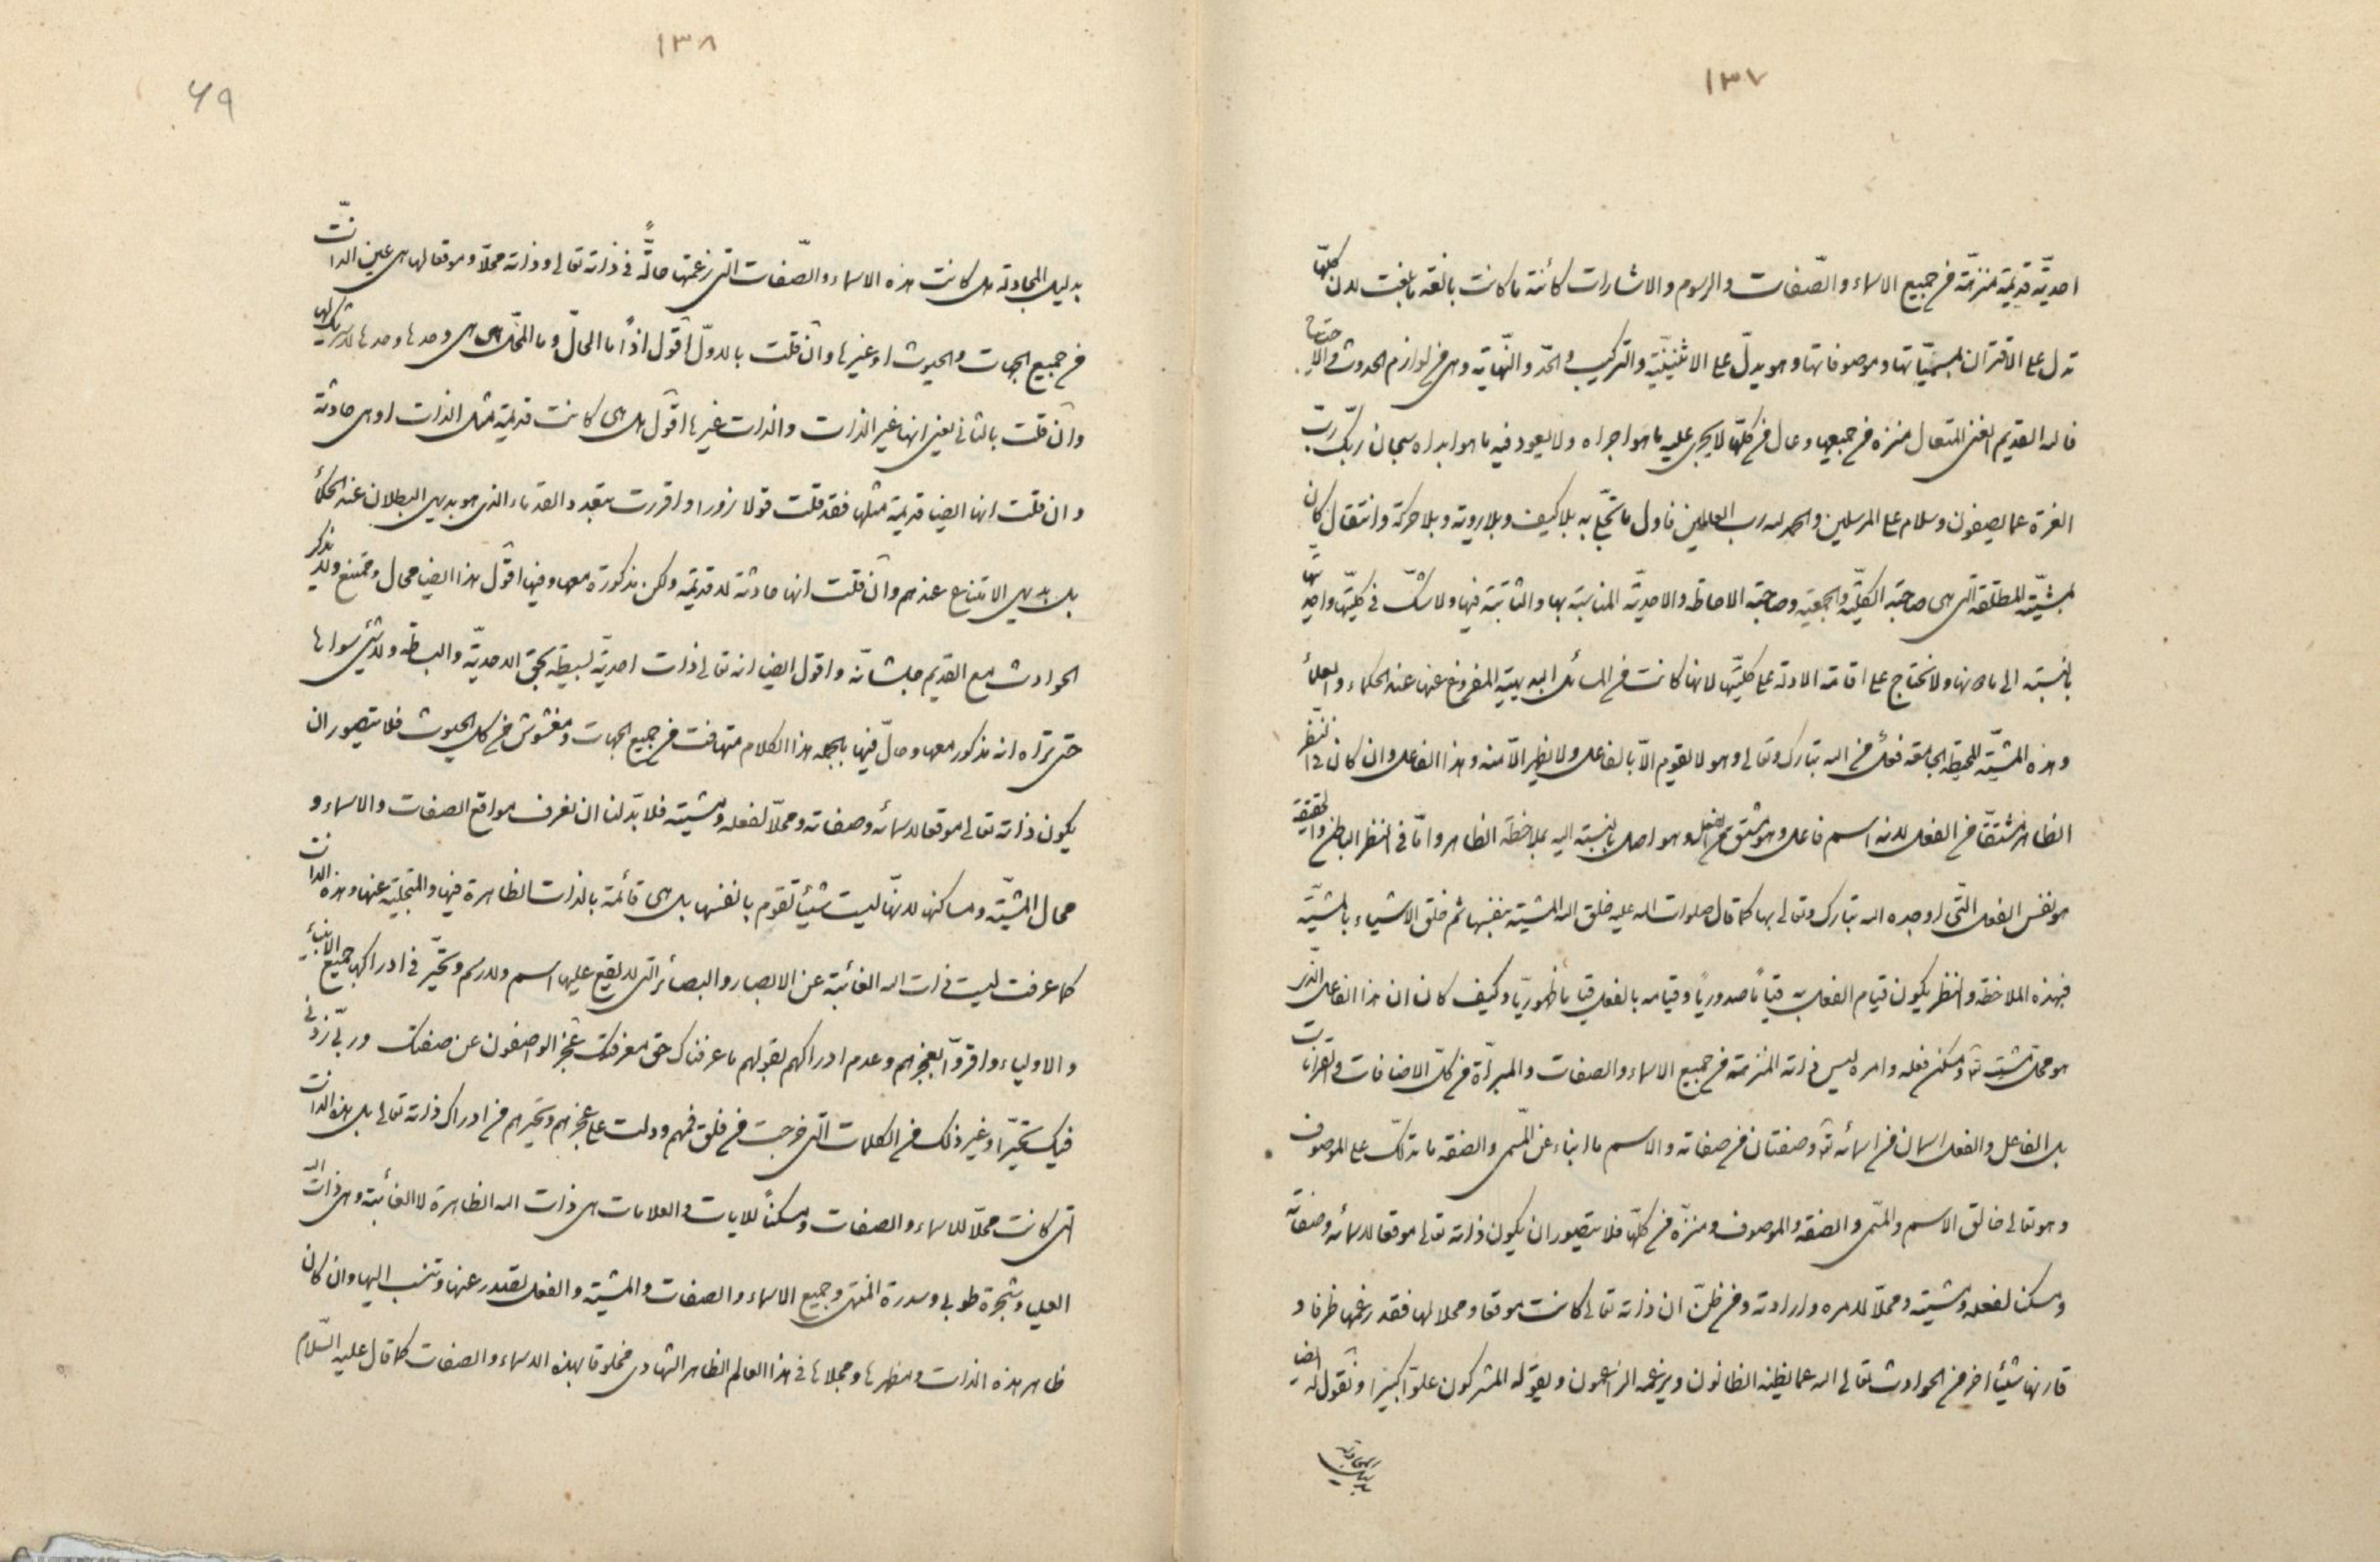 ١٣٧
احديّة قديمة منزهّة من جميع الاسماء والصّفات والرسوم والاشارات كائنة ما كانت بالغة ما بلغت لان كلّها
تدل على الاقتران بمسميّاتها وموصوفاتها وهو يدلّ على الاثنينيّة والتركيب والحدّ والنّهاية وهى من لوازم الحدوث والاحتياج
فالله القديم الغنى المتعال منزه من جميعها وعال من كلّها لا يجرى عليه ما هو اجراه ولا يعود فيه ما هو ابداه سبحان ربّك ربّ
العزة عما يصفون وسلام على المرسلين والحمد لله رب العالمين فاول ما تجلّى به بلا كيف وبلا روية وبلا حركة وانتقال كان
المشيّة المطلقة التى هى صاحبة الكليّة والجمعية وصاحبة الاحاطة والاحديّة المناسبة بها والثابتة فيها ولا شكّ فى كليّتها واحديّتها
بالنسبة الى ما دونها ولا نحتاج على اقامة الادلة على كليّتها لانها كانت من المسائل البديهية المفروغ عنها عند الحكماء والعلمآء
وهذه المشيّة المحيطة الجامعة فعل من الله تبارك وتعالى وهو لا يقوم الّا بالفاعل ولا يظهر الّا منه وهذا الفاعل وان كان فى النظر
الظاهر مشتقّا من الفعل لانه اسم فاعل وهو مشتق من الفعل وهو اصل بالنسبة اليه بملاحظة الظاهر وامّا فى النظر الباطن والحقيقة
هو نفس الفعل التى اوجده الله تبارك وتعالى بها كما قال صلوات الله عليه خلق الله المشية بنفسها ثم خلق الاشياء بالمشيّة
فبهذه الملاحظة والنظر يكون قيام الفعل به قياماً صدوريّاً وقيامه بالفعل قياما ظهوريّا وكيف كان ان هذا الفاعل الذى
هو محلّ مشيته ومسكن فعله وامره ليس ذاته المنزهة من جميع الاسماء والصفات والمبرّأة من كلّ الاضافات والقرانات
بل الفاعل والفعل اسمان من اسمائه وصفتان من صفاته والاسم ما انباء عن المسمّى والصفة ما تدلّ على الموصوف
وهو تعالى خالق الاسم والمسمّى والصفة والموصوف ومنزّه من كلّها فلا يتصور ان يكون ذاته تعالى موقعا لاسمائه وصفاته
ومسكنا لفعله ومشيته ومحلّا لامره وارادته ومن ظنّ ان ذاته تعالى كانت موقعا ومحلا لها فقد زعمها ظرفا و
قارنها شيئا اخر من الحوادث تعالى الله عما يظنه الظانون ويزعمه الزاعمون ويقوله المشركون علوّا كبيرا ونقول له ايضا
بدليل المجادلة
١٣٨
٦٩
بدليل المجادلة هل كانت هذه الاسماء والصّفات التى زعمتها حالّةً فى ذاته تعالى وذاته محلّا وموقعا لها هى عين الذات
من جميع الجهات والحيوث او غيرها وان قلت بالاوّل اقول اذاً ما الحالّ وما المحلّ هى هى وحدها وحدها لا شريك لها
وان قلت بالثانى يعنى انها غير الذات والذات غيرها اقول هل هى كانت قديمة مثل الذات او هى حادثة
وان قلت انها ايضا قديمة مثلها فقد قلت قولا زورا واقررت بتعدد القدماء الذى هو بديهى البطلان عند الحكمآء
بل بديهى الامتناع عندهم وان قلت انها حادثة لا قديمة ولكن مذكورة معها وفيها اقول هذا ايضا محال وممتنع ولا يذكر
الحوادث مع القديم جلّ شانه واقول ايضا انه تعالى ذات احديّة بسيطة بحق الاحديّة والبساطة ولا شئ سواها
حتى تراه انه مذكور معها وحالّ فيها بالجملة هذا الكلام متهافت من جميع الجهات ومغشوش من كل الحيوث فلا يتصور ان
يكون ذاته تعالى موقعا لاسمائه وصفاته ومحلّا لفعله ومشيته فلا بدّ لنا ان نعرف مواقع الصفات والاسماء و
محال المشيّة ومساكنها لانّها ليست شيئا تقوم بانفسها بل هى قائمة بالذات الظاهرة فيها والمتجلية عنها وهذه الذات
كما عرفت ليست ذات الله الغائبة عن الابصار والبصائر التى لا يقع عليها اسم ولا رسم وتحيّر فى ادراكها جميع الانبياء
والاولياء واقرّوا بعجزهم وعدم ادراكهم بقولهم ما عرفناك حق معرفتك عجز الواصفون عن صفتك وربّى زدنى
فيك تحيّرا وغير ذلك من الكلمات التى خرجت من فلق فمهم ودلت على عجزهم وتحيرهم من ادراك ذاته تعالى بل هذه الذات
التى كانت محلّا للاسماء والصفات ومسكناً للايات والعلامات هى ذات الله الظاهرة لا الغائبة وهى ذات الله
العليا وشجرة طوبى وسدرة المنتهى وجميع الاسماء والصفات والمشية والفعل تصدر عنها وتنسب اليها وان كان
ظاهر هذه الذات ومظهرها ومجلاها فى هذا العالم الظاهر الشهادى مخلوقا بهذه الاسماء والصفات كما قال عليه السّلام